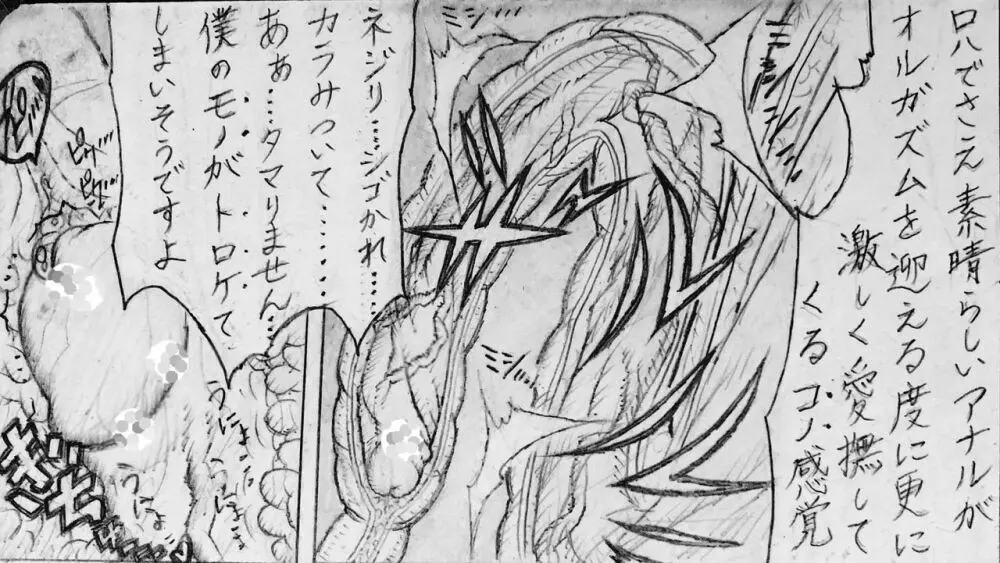 ロハでさえ素晴らしいアナルが
オルガズムを迎える度に更に
激しく愛撫して
くるコノ感覚
ミシ…
ネジリ……シゴかれ……
カラみついて…………
あぁ……タマりません……
僕のモノがトロケて
しまいそうですよ
ピク…
ピク…
うにょ
うにょ